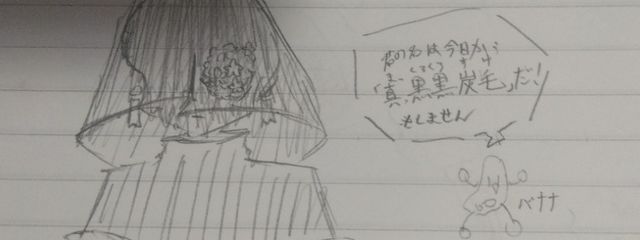 君の名は今日から
まっくろくろすけ
「真黒黒炭毛」だ!
もしません
バナナ